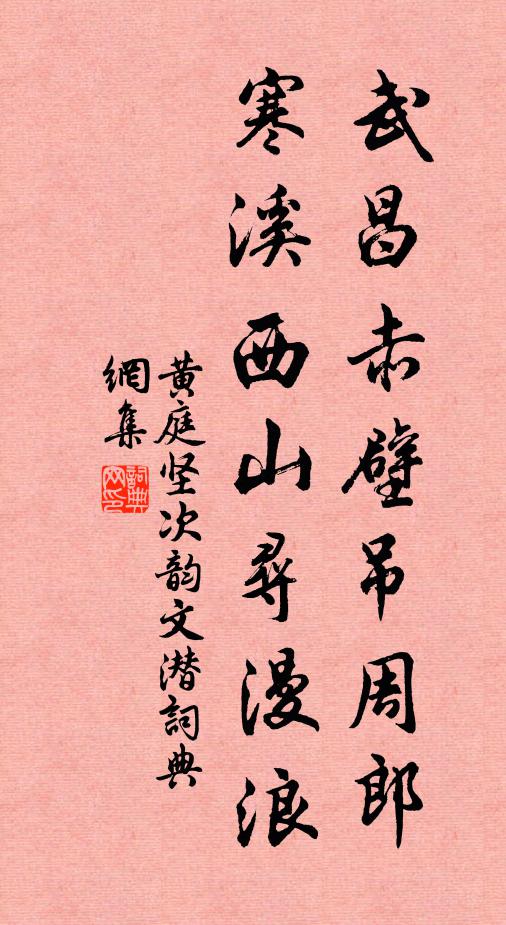 武昌赤壁吊周郎
寒溪西山尋漫浪
黄庭坚次韵文潜詞典
網集
詞典
网印